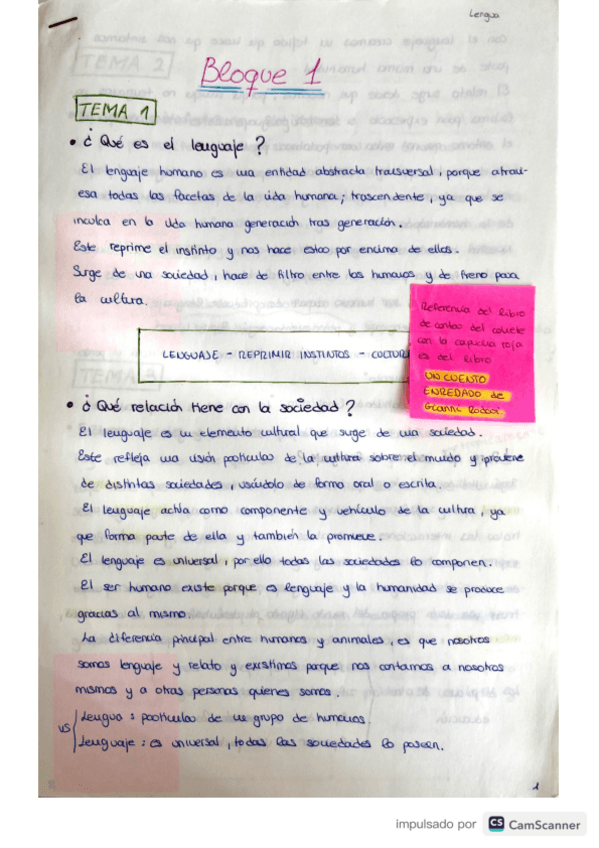 Lengua
Bloque 1
TEMA 2
TEMA 1
• ¿Qué es el lenguaje?
El lenguaje humano es una entidad abstracta transversal, porque atravi-
esa todas las facetas de la vida humana; trascendente, ya que se
inculca en la vida humana generación tras generación.
Este reprime el instinto y nos hace estar por encima de ellos.
Surge de una sociedad, hace de filtro entre los humanos y de freno para
la cultura.
LENGUAJE - REPRIMIR INSTINTOS - CULTURA
Referencia del libro
de contao del cohete
con la capucha roja
es del libro
UN CUENTO
ENREDADO de
Gianni Rodari
• ¿Qué relación tiene con la sociedad?
El lenguaje es un elemento cultural que surge de una sociedad.
Este refleja una visión particular de la cultura sobre el mundo y proviene
de distintas sociedades, usándolo de forma oral o escrita.
El lenguaje actúa como componente y vehículo de la cultura, ya
que forma parte de ella y también la promueve.
El lenguaje es universal, por ello todas las sociedades lo componen.
El ser humano existe porque es lenguaje y la humanidad se produce
gracias al mismo.
La diferencia principal entre humanos y animales, es que nosotros
somos lenguaje y relato y existimos porque nos contamos a nosotros
mismos y a otras personas quienes somos.
vs
Lengua: particular de un grupo de humanos.
Lenguaje: es universal, todas las sociedades lo poseen.
1
impulsado por CS CamScanner